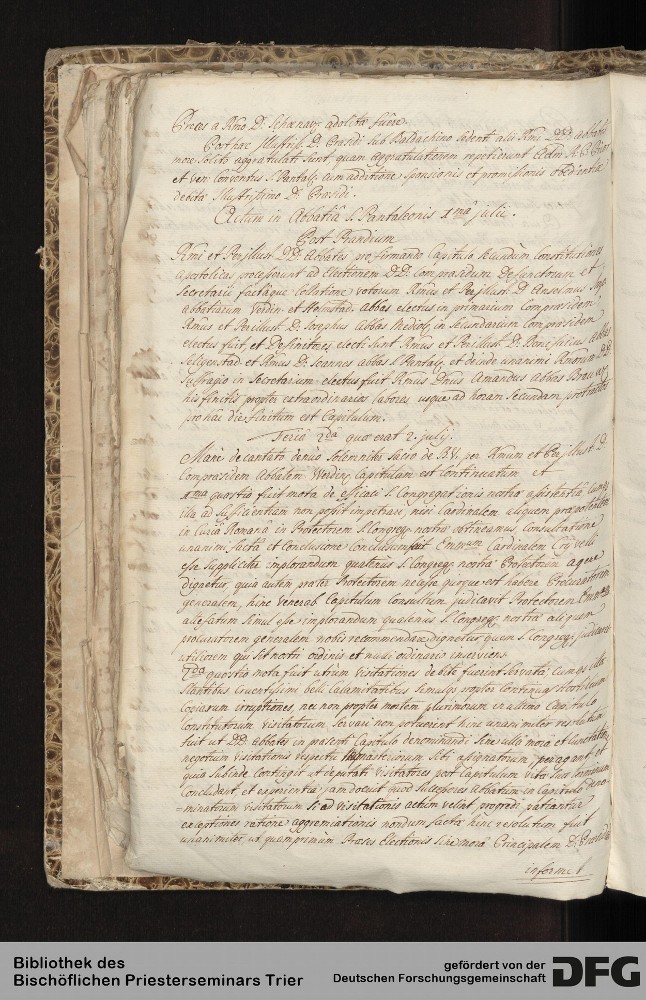 Preces a Rmo D. Schœnau adolitæ fuere.
Post hac Illustriss. D. Præsidi sub Baldachino sedenti alii Rmi DD. Abbates
more solito aggratulati sunt quam aggratulationem repetierunt Adm. R. P. Prior
et ven. Conventus S. Pantal. cum additione sponsionis et promissionis obedientiæ
debitæ Illustrissimo D. Præsidi.
Actum in Abbatiâ S. Pantaleonis 1mâ julii.
Post Prandium
Rmi et Perillust. DD. Abbates pro firmando Capitulo secundum Constitutiones
apostolicas processerunt ad Electionem DD. Compræsidum Definitorum et
Secretarii factâque collatione votorum Rmus et Perillust. D. Anselmus
abbatiarum Verdin. et Helmstad. abbas electus in primarium Compræsidem
Rmus et Perillust. D. Josephus Abbas Mediol. in secundarium compræsidem
electus fuit et Definitores electi sunt Rmus et Perillust. D. Bonifacius abbas
Seligenstad. et Rmus D. Joannes abbas S. Pantal. et deinde unanimi Rmorum DD.
suffragio in Secretarium electus fuit Rmus Dnus Amandus Abbas
his finitis propter extraordinarios labores usque ad horam secundam protractos
pro hac die finitum est Capitulum.
Feriâ 2dâ quæ erat 2. julij.
Mane decantato denuo solemniter sacro de B.V. per Rmum et Perillust. D.
Compræsidem Abbatem Werdin. Capitulum est continuatum et
1ma quæstio fuit mota de efficaci S. Congregationis nostræ assistentiâ, cumque
illa ad sufficientiam non possit impetrari, nisi Cardinalem aliquem præpotentem
in Curiâ Romanâ in Protectorem S. Congreg. nostræ obtineamus, consultatione
unanimi factâ et conclusione conclusum fuit Emmum Cardinalem Crivelli
esse suppliciter implorandum quatenus S. Congreg. nostræ Protectorem agere
dignetur, quia autem præter Protectorem necesse quoque est habere Procuratorem
generalem, hinc Venerab. Capitulum consultum judicavit Protectorem Emmum
allefatum simul esse implorandum quatenus S. Congreg. nostræ aliquem
procuratorem generalem nobis recommendare dignetur quem S. Congreg. judicaverit
utiliorem qui sit nostri ordinis et nulli ordinario inserviens.
2da quæstio mota fuit utrum visitationes debite fuerint servatæ cumque illæ
stantibus cruentissimi belli calamitatibus simulque propter continuas
copiarum irruptiones, nec non propter mortem plurimorum in ultimo Capitulo
constitutorum visitatorum servari non potuerint hinc unanimiter resolutum
fuit ut DD. abbates in præsenti Capitulo denominandi sine ullâ morâ et cunctatione
negotium visitationis respectu Monasteriorum sibi assignatorum peragant et
quia subinde contingit ut deputati visitatores post Capitulum vitæ suæ terminum
concludant et experientia jam docuit quod successores abbatum in Capitulo deno-
=minatorum visitatorum si ad visitationis actum velint progredi patiantur
exceptiones ratione aggremiationis nondum factæ hinc resolutum fuit
unanimiter ut quamprimum Præses electionis sine morâ Principalem D. Præsidem
informet
Bibliothek des
Bischöflichen Priesterseminars Trier
gefördert von der
Deutschen Forschungsgemeinschaft
DFG